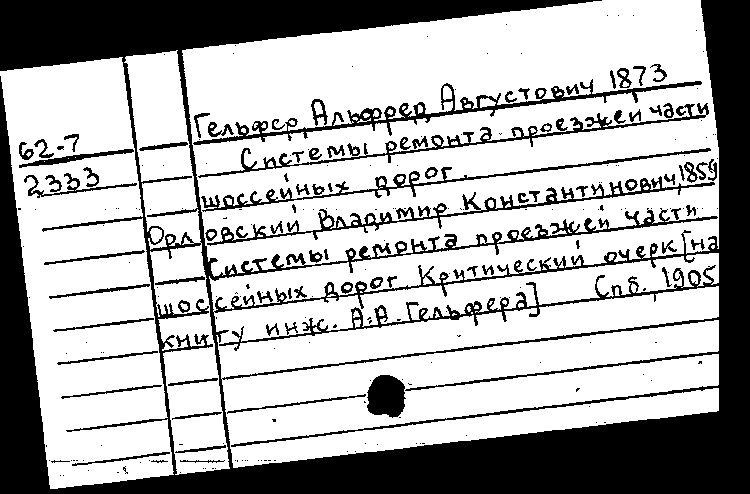 Гельфер, Альфред Августович, 1873
62-7
Системы ремонта проезжей части
2333
шоссейных дорог.
Орловский, Владимир Константинович, 1859
Системы ремонта проезжей части
шоссейных дорог. Критический очерк [на
книгу инж. А.А. Гельфера] Спб., 1905